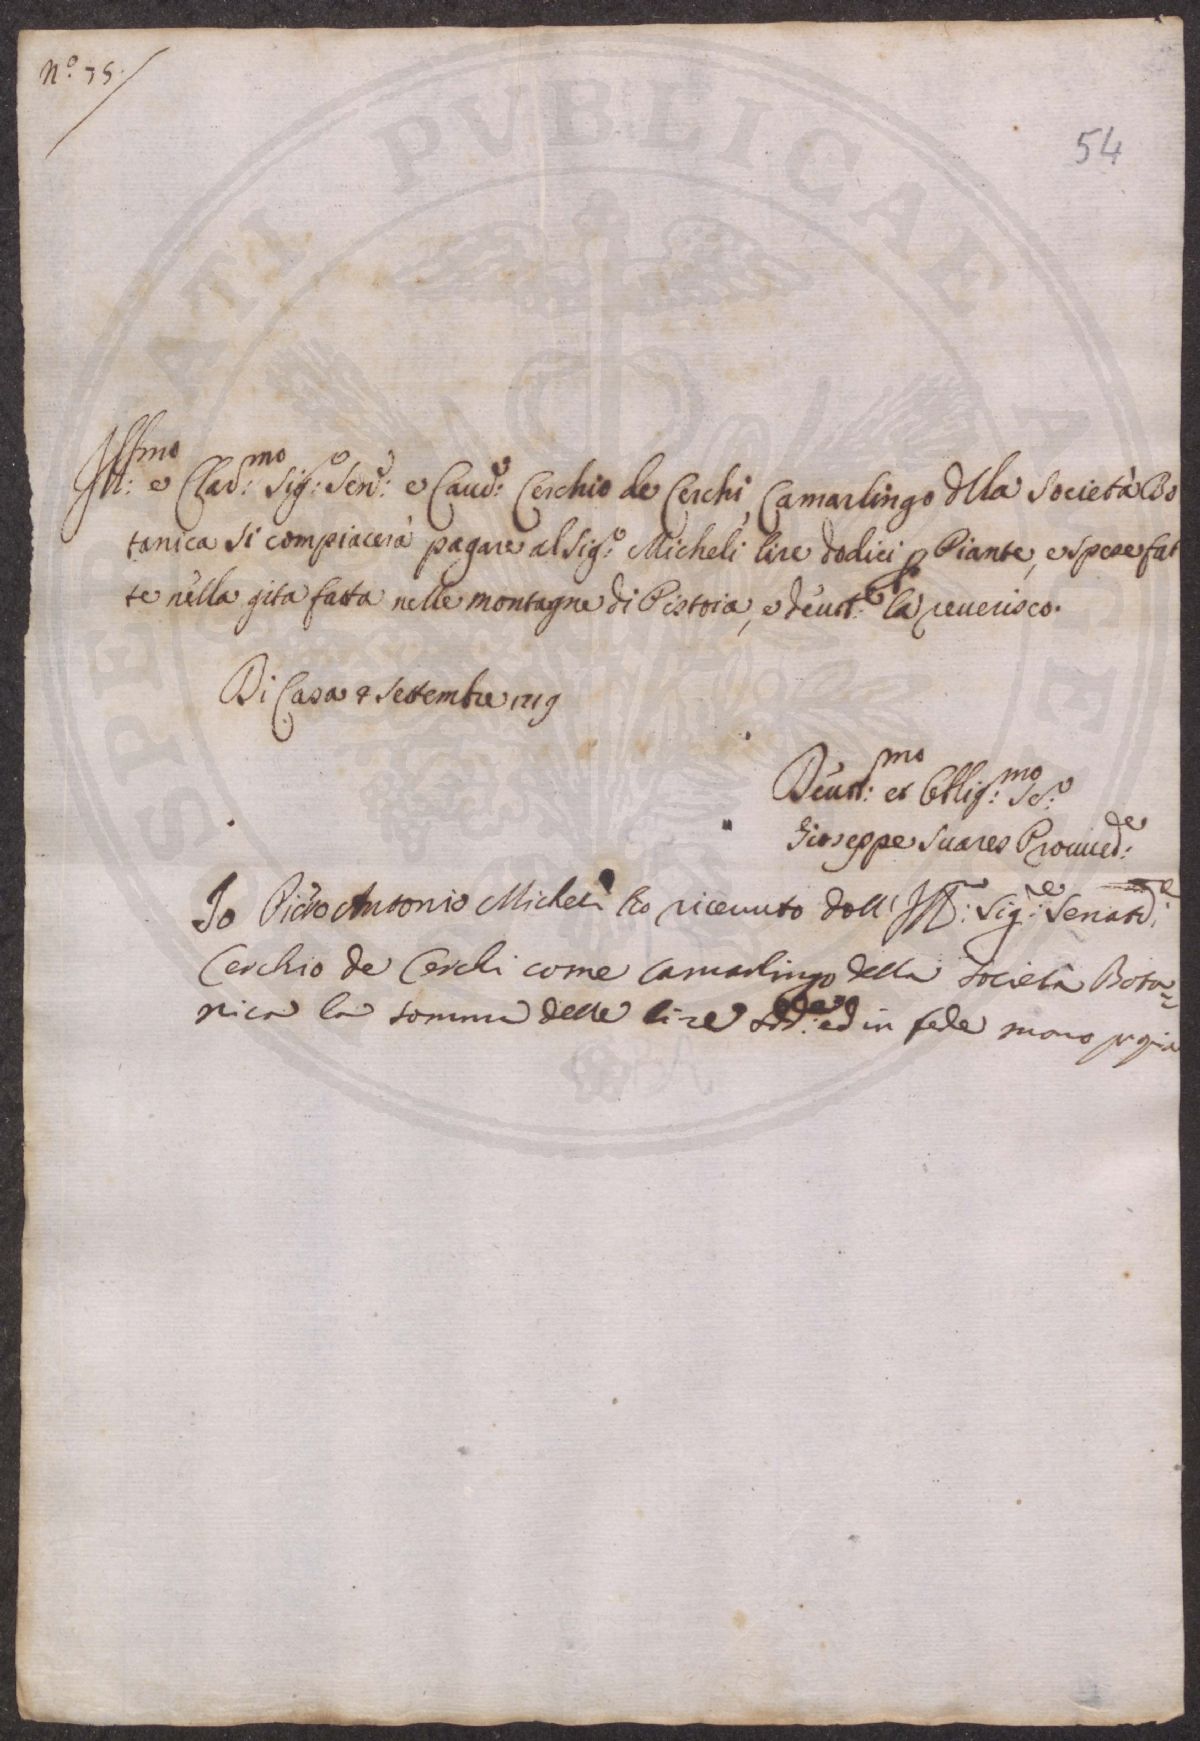 N.o 35.
54
Ill:mo e Clar:mo Sig:o Sen:e e Caval:e Cerchio de Cerchi, Camarlingo della Società Bo
tanica si compiacerà pagare al Sig:o Micheli lire dodici p Piante, e spese fat
te nella gita fatta nelle montagne di Pistoia, e devot:e la reverisco.
Di Casa Settembre 1719
Devot:mo et Obblig:mo Se:e
Giuseppe Suares Provved:re
Io Pietro Antonio Micheli ho ricevuto dall' Ill: Sig:re Senat:e
Cerchio de Cerchi come Camarlingo della Società Bota=
nica la somma delle lire ed in fede mano pp:ia